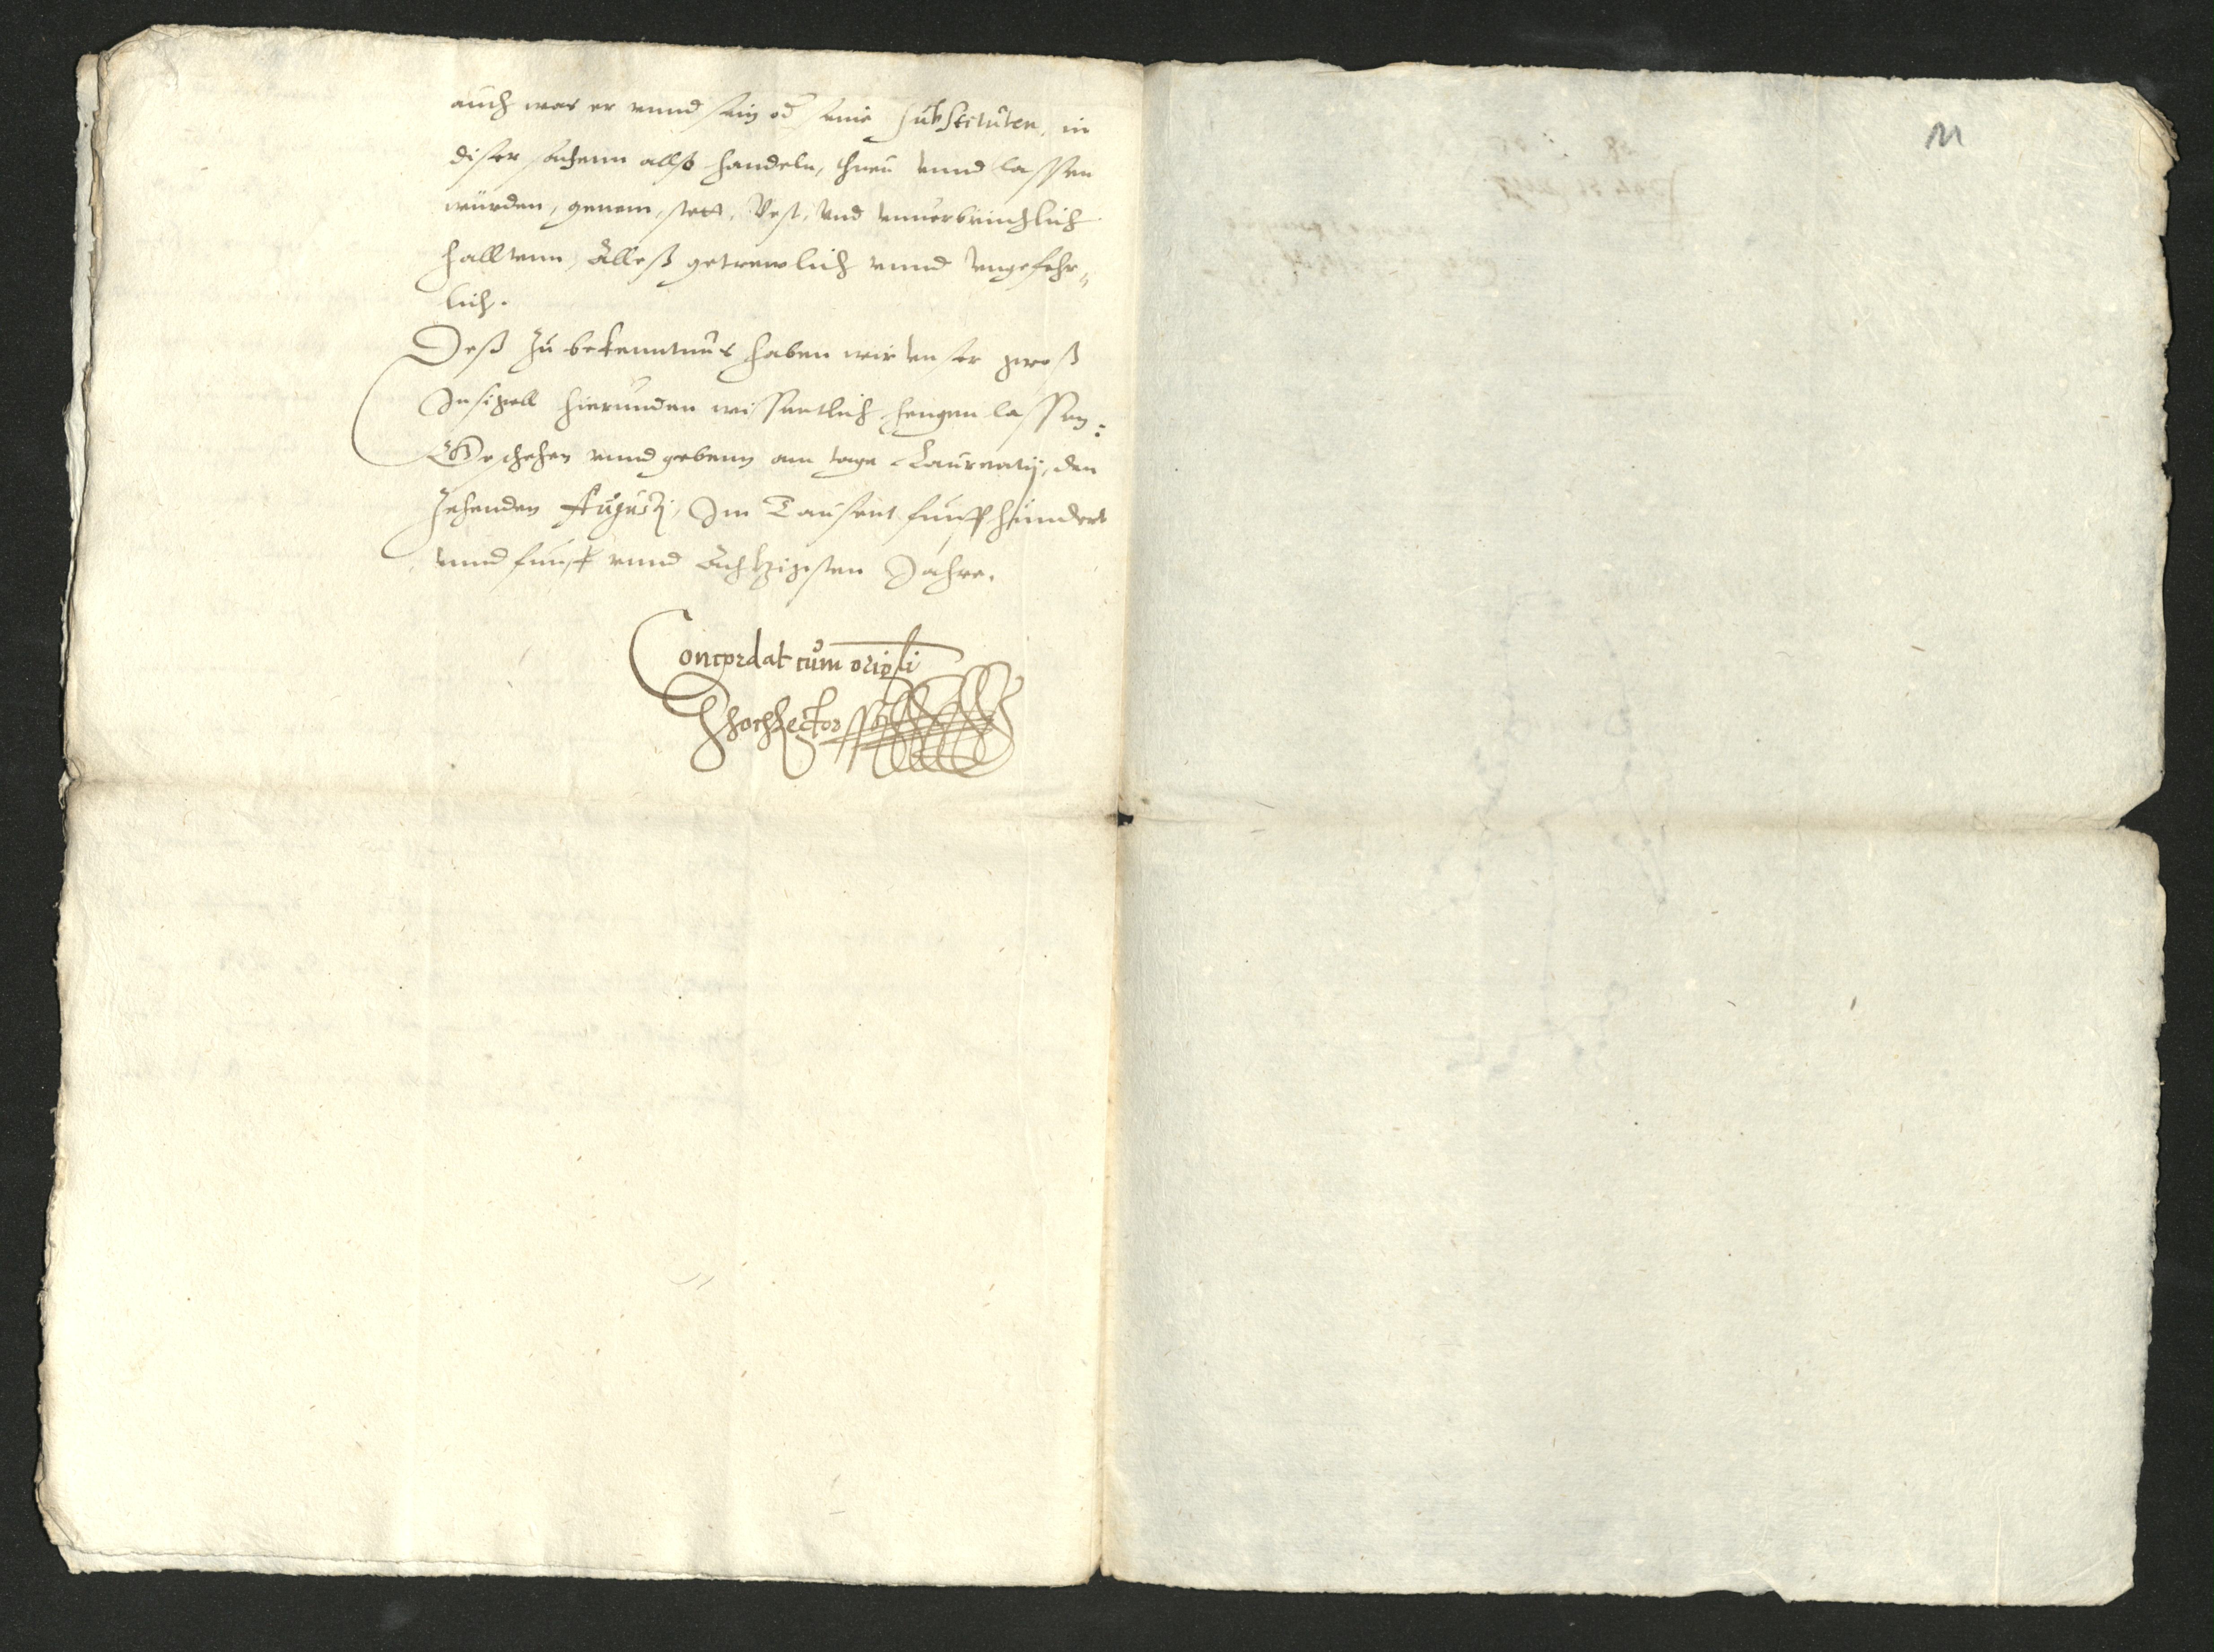 auch was er vnnd sein od seine substituten, in
diser sachenn allso handeln, thuen vnnd lassen
würden, genem, stett, Vest, Vnd vnuerbrüchlich
halltenn, Alleß getrewlich vnnd vngefehr„
lich.
Deß zu bekenntnus haben wir vnser groß
Insigell hierunden wissentlich hengen lassen:
Geschehen vnnd gebenn am tage Laurentij, den
Zehenden Augusti, Im Tausent fünffhundert
vnnd fünff vnnd Achtzigsten Jahre.
Concordat cum origli
11